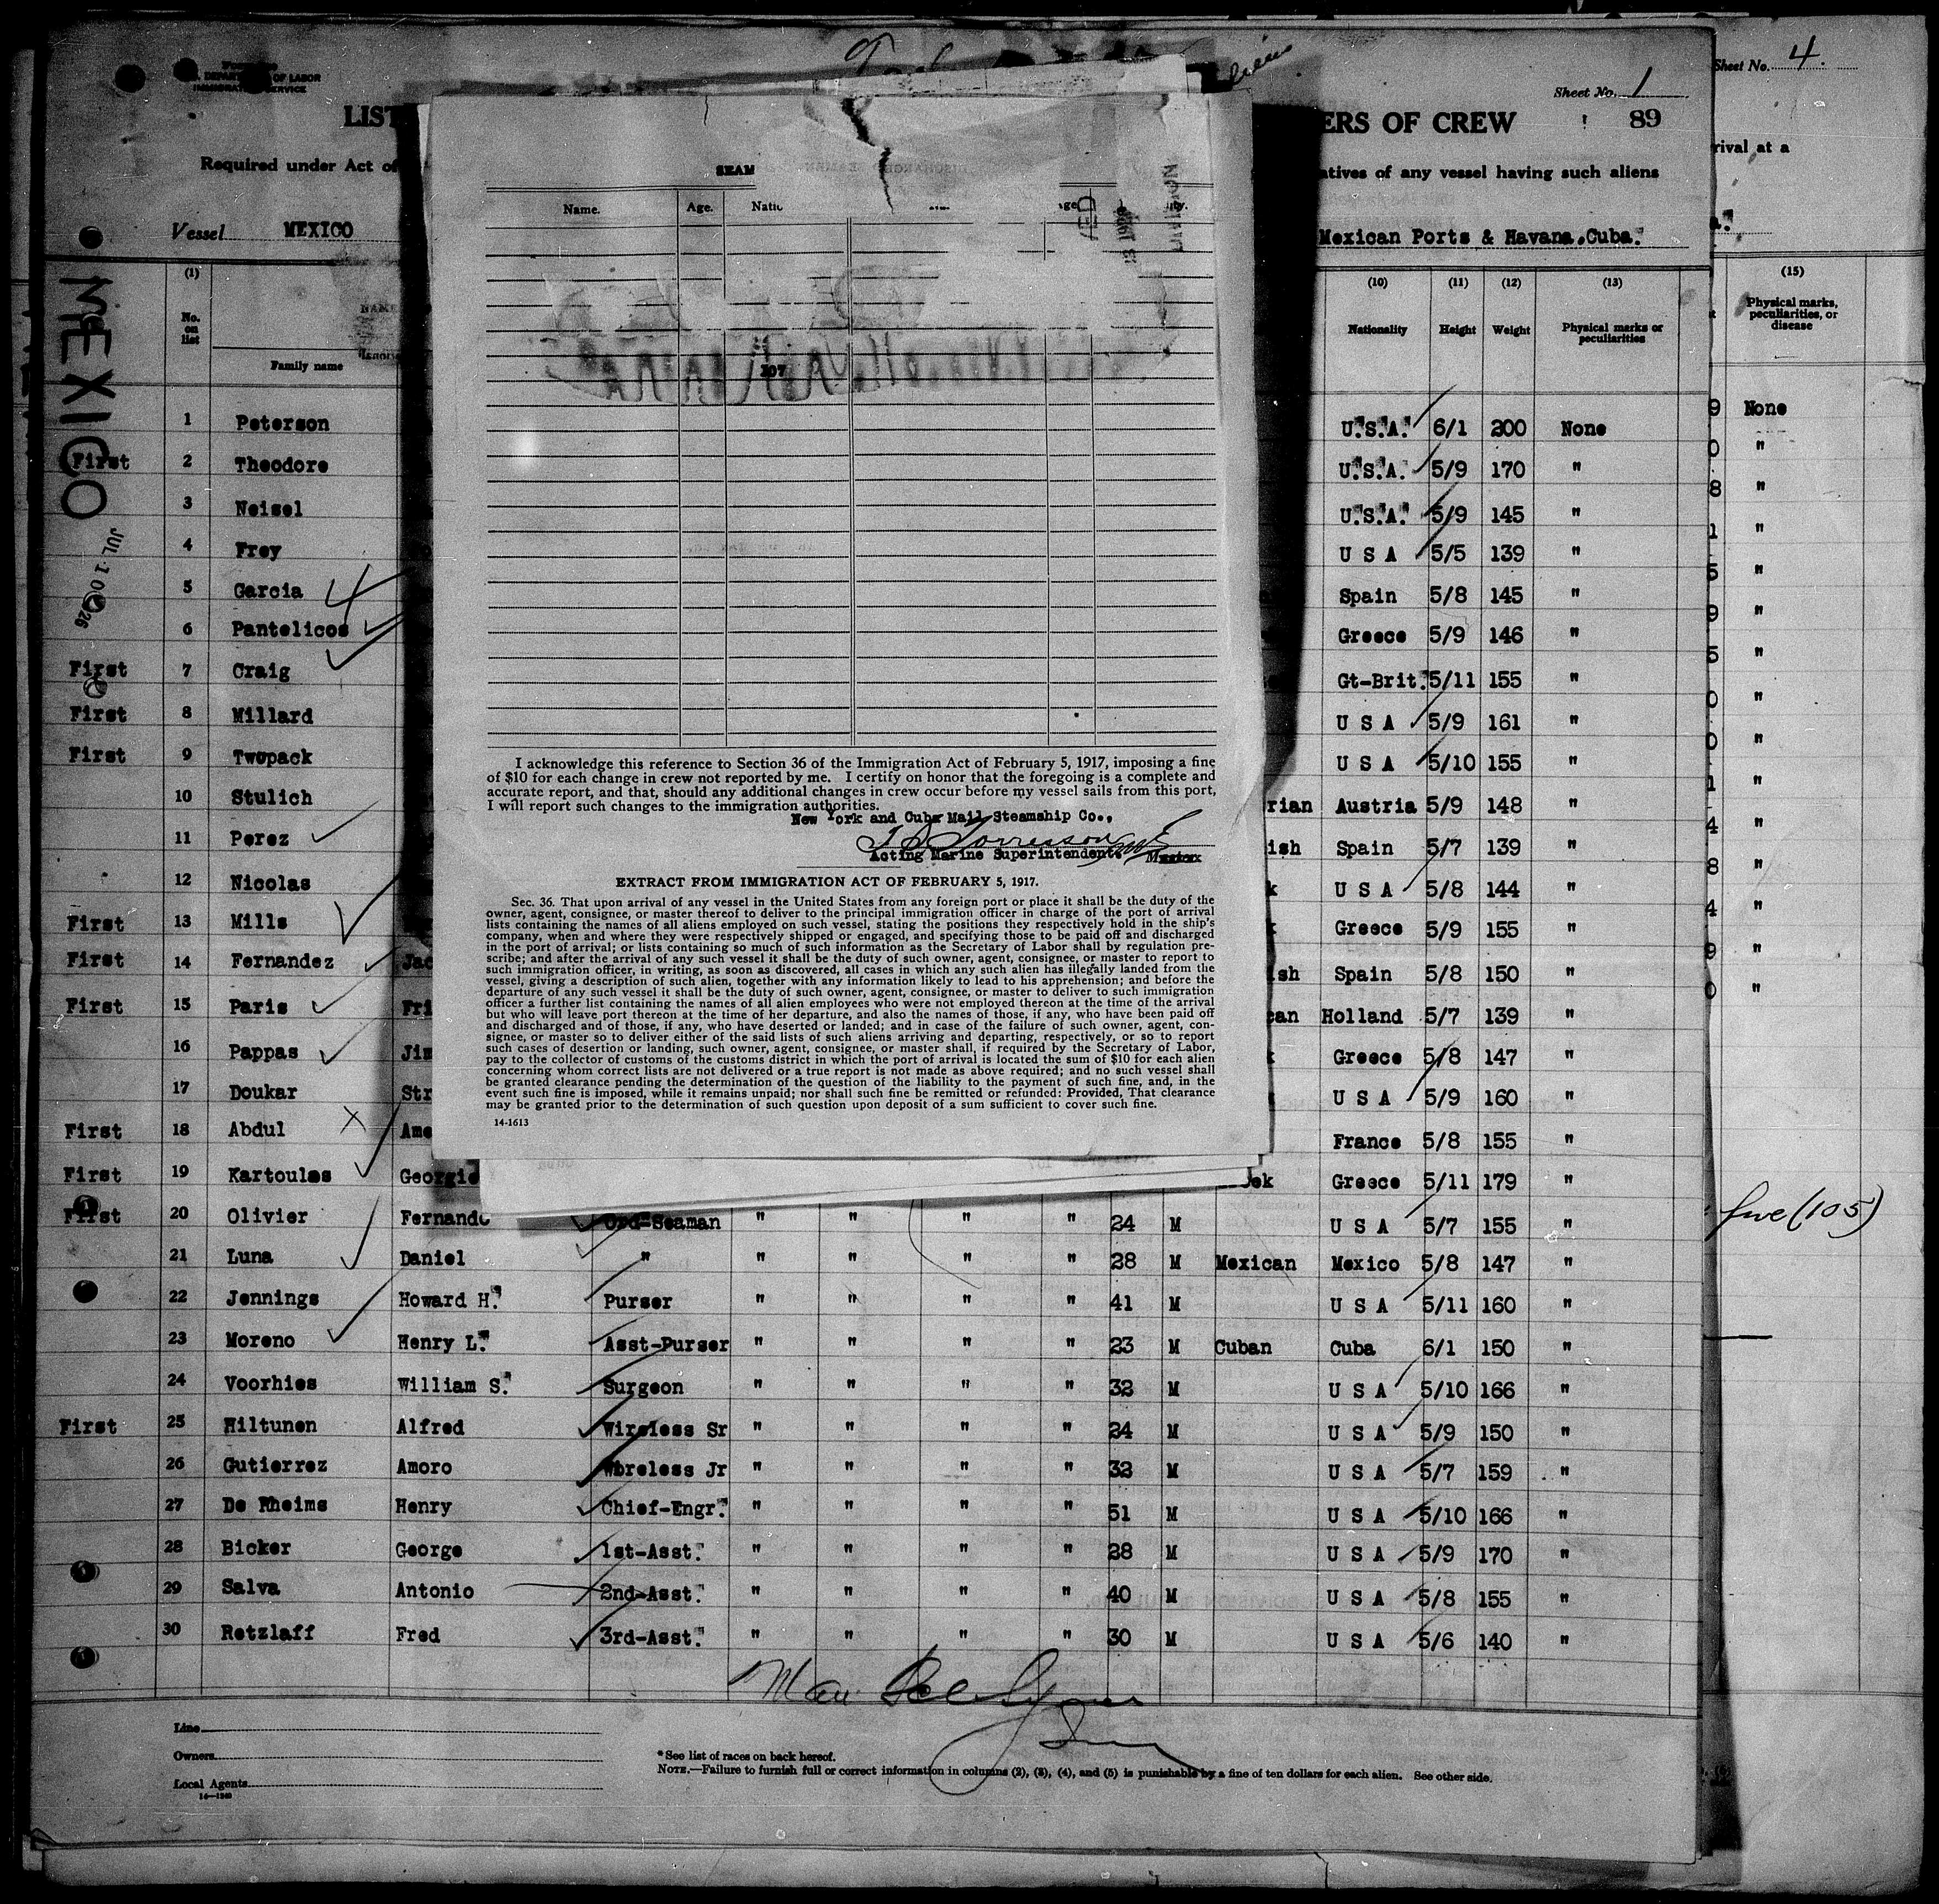 Sheet No. 4.
Sheet No. 1
DEPARTMENT OF LABOR
IMMIGRATION SERVICE
LIST
ERS OF CREW
89
Required under Act of
atives of any vessel having such aliens
rival at a
Vessel MEXICO
Mexican Ports & Havana, Cuba.
MEXICO
JUL 10 1926
(1) (10) (11) (12) (13) (15)
No. on list
Family name
Nationality Height Weight Physical marks or peculiarities
Physical marks, peculiarities, or disease
SEAM
Name. Age. Natio
107
1 Peterson U.S.A. 6/1 200 None
First 2 Theodore U.S.A. 5/9 170 "
3 Neisel U.S.A. 5/9 145 "
4 Frey U S A 5/5 139 "
5 Garcia Spain 5/8 145 "
6 Pantelicos Greece 5/9 146 "
First 7 Craig Gt-Brit. 5/11 155 "
First 8 Millard U S A 5/9 161 "
First 9 Twopack U S A 5/10 155 "
10 Stulich rian Austria 5/9 148 "
11 Perez ish Spain 5/7 139 "
12 Nicolas k U S A 5/8 144 "
First 13 Mills Greece 5/9 155 "
First 14 Fernandez Jac sh Spain 5/8 150 "
First 15 Paris Fri can Holland 5/7 139 "
16 Pappas Jim Greece 5/8 147 "
17 Doukar Str U S A 5/9 160 "
First 18 Abdul Ame France 5/8 155 "
First 19 Kartoulas Georgio eek Greece 5/11 179 "
First 20 Olivier Fernando Ord-Seaman " " " " 24 M U S A 5/7 155 "
21 Luna Daniel " " " " " 28 M Mexican Mexico 5/8 147 "
22 Jennings Howard H. Purser " " " " 41 M U S A 5/11 160 "
23 Moreno Henry L. Asst-Purser " " " " 23 M Cuban Cuba 6/1 150 "
24 Voorhies William S. Surgeon " " " " 32 M U S A 5/10 166 "
First 25 Hiltunen Alfred Wireless Sr " " " " 24 M U S A 5/9 150 "
26 Gutierrez Amoro Wireless Jr " " " " 32 M U S A 5/7 159 "
27 De Rheims Henry Chief-Engr. " " " " 51 M U S A 5/10 166 "
28 Bicker George 1st-Asst. " " " " 28 M U S A 5/9 170 "
29 Salva Antonio 2nd-Asst. " " " " 40 M U S A 5/8 155 "
30 Retzlaff Fred 3rd-Asst. " " " " 30 M U S A 5/6 140 "
None
five (105)
I acknowledge this reference to Section 36 of the Immigration Act of February 5, 1917, imposing a fine
of $10 for each change in crew not reported by me. I certify on honor that the foregoing is a complete and
accurate report, and that, should any additional changes in crew occur before my vessel sails from this port,
I will report such changes to the immigration authorities.
New York and Cuba Mail Steamship Co.,
Acting Marine Superintendent. Master
EXTRACT FROM IMMIGRATION ACT OF FEBRUARY 5, 1917.
Sec. 36. That upon arrival of any vessel in the United States from any foreign port or place it shall be the duty of the
owner, agent, consignee, or master thereof to deliver to the principal immigration officer in charge of the port of arrival
lists containing the names of all aliens employed on such vessel, stating the positions they respectively hold in the ship's
company, when and where they were respectively shipped or engaged, and specifying those to be paid off and discharged
in the port of arrival; or lists containing so much of such information as the Secretary of Labor shall by regulation pre-
scribe; and after the arrival of any such vessel it shall be the duty of such owner, agent, consignee, or master to report to
such immigration officer, in writing, as soon as discovered, all cases in which any such alien has illegally landed from the
vessel, giving a description of such alien, together with any information likely to lead to his apprehension; and before the
departure of any such vessel it shall be the duty of such owner, agent, consignee, or master to deliver to such immigration
officer a further list containing the names of all alien employees who were not employed thereon at the time of the arrival
but who will leave port thereon at the time of her departure, and also the names of those, if any, who have been paid off
and discharged and of those, if any, who have deserted or landed; and in case of the failure of such owner, agent, con-
signee, or master so to deliver either of the said lists of such aliens arriving and departing, respectively, or so to report
such cases of desertion or landing, such owner, agent, consignee, or master shall, if required by the Secretary of Labor,
pay to the collector of customs of the customs district in which the port of arrival is located the sum of $10 for each alien
concerning whom correct lists are not delivered or a true report is not made as above required; and no such vessel shall
be granted clearance pending the determination of the question of the liability to the payment of such fine, and, in the
event such fine is imposed, while it remains unpaid; nor shall such fine be remitted or refunded: Provided, That clearance
may be granted prior to the determination of such question upon deposit of a sum sufficient to cover such fine.
14-1613
Line
Owners
Local Agents
* See list of races on back hereof.
NOTE.—Failure to furnish full or correct information in columns (2), (3), (4), and (5) is punishable by a fine of ten dollars for each alien. See other side.